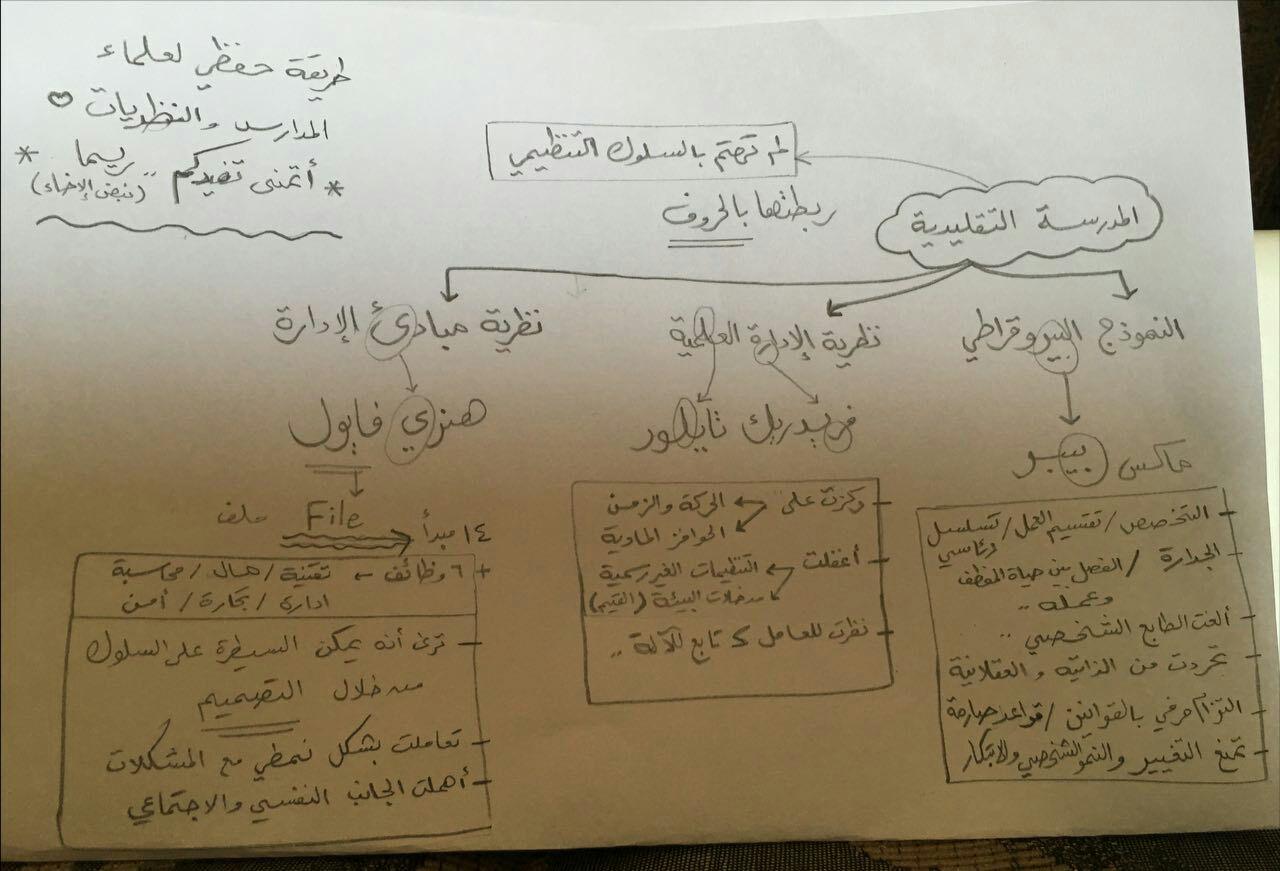 طريقة حفظي لعلماء
المدارس والنظريات
* أتمنى تفيدكم .. ريما *
(نبض الإخاء)
المدرسة التقليدية
لم تهتم بالسلوك التنظيمي
ربطتها بالحروف
النموذج البيروقراطي
ماكس بيبر
- التخصص / تقسيم العمل / تسلسل رئاسي
- الجدارة / الفصل بين حياة الموظف
وعمله ..
- ألغت الطابع الشخصي ..
- تجردت من الذاتية والعقلانية
- التزام حرفي بالقوانين / قواعد صارمة
- تمنع التغيير والنمو الشخصي والابتكار
نظرية الإدارة العلمية
فريدريك تايلور
- ركزت على ← الحركة والزمن
الحوافز المادية
- أغفلت ← التنظيمات الغير رسمية
مدخلات البيئة (القيم)
- نظرت للعامل كـ تابع للآلة ..
نظرية مبادئ الإدارة
هنري فايول
File ملف
١٤ مبدأ
+ ٦ وظائف ← تقنية / مال / محاسبة
ادارة / تجارة / أمن
- ترى أنه يمكن السيطرة على السلوك
من خلال التصميم
- تعاملت بشكل نمطي مع المشكلات
- أهملت الجانب النفسي والاجتماعي